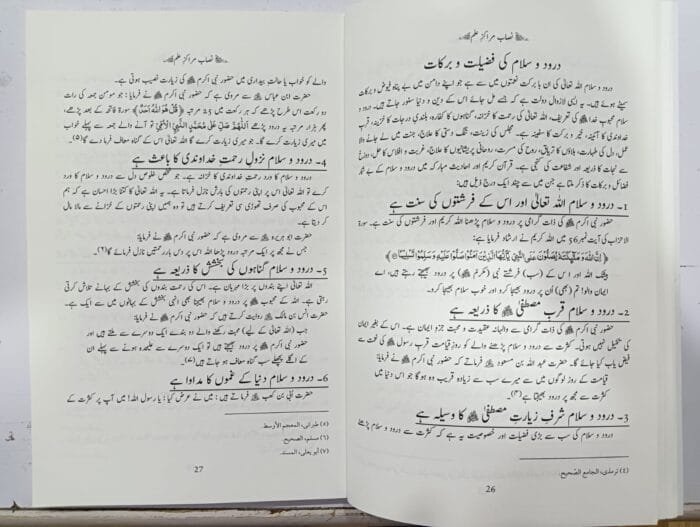 نصاب مراکزِ علم
درود و سلام کی فضیلت و برکات
درود و سلام اللہ تعالیٰ کی ان بابرکت نعمتوں میں سے ہے جو اپنے دامن میں بے پناہ فیوض و برکات
سمیٹے ہوئے ہیں۔ یہ ایسی لازوال دولت ہے کہ جسے مل جائے اس کے دین و دنیا سنور جاتے ہیں۔ درود و
سلام محبوب خدا ﷺ کی تعریف، اللہ تعالیٰ کی رحمت کا خزانہ، گناہوں کا کفارہ، بلندی درجات کا زینہ، قرب
خداوندی کا آئینہ، خیر و برکت کا سفینہ ہے۔ مجلس کی زینت، تنگ دستی کا علاج، جنت میں لے جانے والا
عمل، دل کی طہارت، بلاؤں کا تریاق، روح کی مسرت، روحانی پریشانیوں کا علاج، غربت و افلاس کا حل، دوزخ
سے نجات کا ذریعہ اور شفاعت کی کنجی ہے۔ قرآن کریم اور احادیث مبارکہ میں درود و سلام کے بے شمار
فضائل و برکات کا ذکر ملتا ہے جن میں سے چند ایک درج ذیل ہیں:
1۔ درود و سلام اللہ تعالیٰ اور اس کے فرشتوں کی سنت ہے
حضور نبی اکرم ﷺ کی ذات گرامی پر درود و سلام پڑھنا اللہ کریم اور فرشتوں کی سنت ہے۔ سورۃ
الاحزاب کی آیت نمبر 56 میں اللہ کریم نے ارشاد فرمایا ہے:
﴿إِنَّ اللَّهَ وَمَلَائِكَتَهُ يُصَلُّونَ عَلَى النَّبِيِّ يَا أَيُّهَا الَّذِينَ آمَنُوا صَلُّوا عَلَيْهِ وَسَلِّمُوا تَسْلِيمًا﴾
بیشک اللہ اور اس کے (سب) فرشتے نبی (مکرم ﷺ) پر درود بھیجتے رہتے ہیں، اے
ایمان والو! تم (بھی) اُن پر درود بھیجا کرو اور خوب سلام بھیجا کرو۔
2۔ درود و سلام قربِ مصطفیٰ ﷺ کا ذریعہ ہے
حضور نبی اکرم ﷺ کی ذات گرامی سے والہانہ عقیدت و محبت جزو ایمان ہے۔ اس کے بغیر ایمان
کی تکمیل نہیں ہوتی۔ کثرت سے درود و سلام پڑھنے والے کو روزِ قیامت قرب رسول ﷺ کی نعمت سے
فیض یاب کیا جائے گا۔ حضرت عبد اللہ بن مسعود فرماتے ہیں کہ حضور نبی اکرم ﷺ نے فرمایا:
قیامت کے روز لوگوں میں سے میرے سب سے زیادہ قریب وہ ہو گا جو اس دنیا میں
کثرت سے مجھ پر درود بھیجتا ہے(۴)۔
3۔ درود و سلام شرفِ زیارتِ مصطفیٰ ﷺ کا وسیلہ ہے
درود و سلام کی سب سے بڑی فضیلت اور خصوصیت یہ ہے کہ کثرت سے درود و سلام پڑھنے
(٤) ترمذی، الجامع الصّحیح.
26
نصاب مراکزِ علم
والے کو خواب یا حالتِ بیداری میں حضور نبی اکرم ﷺ کی زیارت نصیب ہوتی ہے۔
حضرت ابن عباس سے مروی ہے کہ حضور نبی اکرم ﷺ نے فرمایا: جو مومن جمعہ کی رات
دو رکعت اس طرح پڑھے کہ ہر رکعت میں 25 مرتبہ ﴿قُلْ هُوَ اللَّهُ أَحَدٌ﴾ سورۃ فاتحہ کے بعد پڑھے،
پھر ہزار مرتبہ یہ درود پڑھے اَللّٰهُمَّ صَلِّ عَلَى مُحَمَّدٍ النَّبِيِّ الْأُمِّيِّ تو آنے والے جمعہ سے پہلے خواب
میں میری زیارت کرے گا۔ جو میری زیارت کرے گا اللہ تعالیٰ اس کے گناہ معاف فرما دے گا(۵)۔
4۔ درود و سلام نزولِ رحمتِ خداوندی کا باعث ہے
درود و سلام کا ورد رحمتِ خداوندی کا خزانہ ہے۔ جو شخص خلوصِ دل سے درود و سلام کا ورد
کرے تو اللہ تعالیٰ اس پر اپنی رحمتوں کی بارش نازل فرماتا ہے۔ یہ اللہ تعالیٰ کا کتنا بڑا احسان ہے کہ ہم
اس کے محبوب کی صرف تھوڑی سی تعریف کرتے ہیں تو وہ ہمیں اپنی رحمتوں کے خزانے سے مالا مال
کر دیتا ہے۔
حضرت ابو ہریرہ سے مروی ہے کہ حضور نبی اکرم ﷺ نے فرمایا:
جس نے مجھ پر ایک مرتبہ درود پڑھا اللہ اس پر دس بار رحمتیں نازل فرمائے گا(۶)۔
5۔ درود و سلام گناہوں کی بخشش کا ذریعہ ہے
اللہ تعالیٰ اپنے بندوں پر بڑا مہربان ہے۔ اس کی رحمت بندوں کی بخشش کے بہانے تلاش کرتی
رہتی ہے۔ اللہ کے محبوب ﷺ پر درود و سلام بھیجنا بھی انہی بخشش کے بہانوں میں سے ایک ہے۔
حضرت انس بن مالک روایت کرتے ہیں کہ حضور نبی اکرم ﷺ نے فرمایا:
جب (اللہ تعالیٰ کے لیے) محبت رکھنے والے دو بندے ایک دوسرے سے ملتے ہیں اور
حضور نبی اکرم ﷺ پر درود بھیجتے ہیں تو ایک دوسرے سے علیحدہ ہونے سے پہلے ان
کے اگلے پچھلے سب گناہ معاف ہو جاتے ہیں(۷)۔
6۔ درود و سلام دنیا کے غموں کا مداوا ہے
حضرت اُبَی بن کعب فرماتے ہیں: میں نے عرض کیا: یا رسول اللہ! میں آپ پر کثرت کے
(٥) طبرانی، المعجم الأوسط.
(٦) مسلم، الصحیح.
(٧) أبو یعلی، المسند.
27